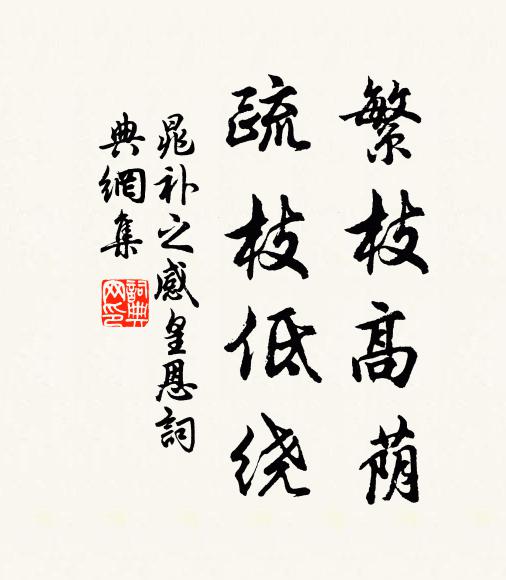 繁枝高荫
疏枝低绕
晁补之感皇恩詞
典網集
詞典网印